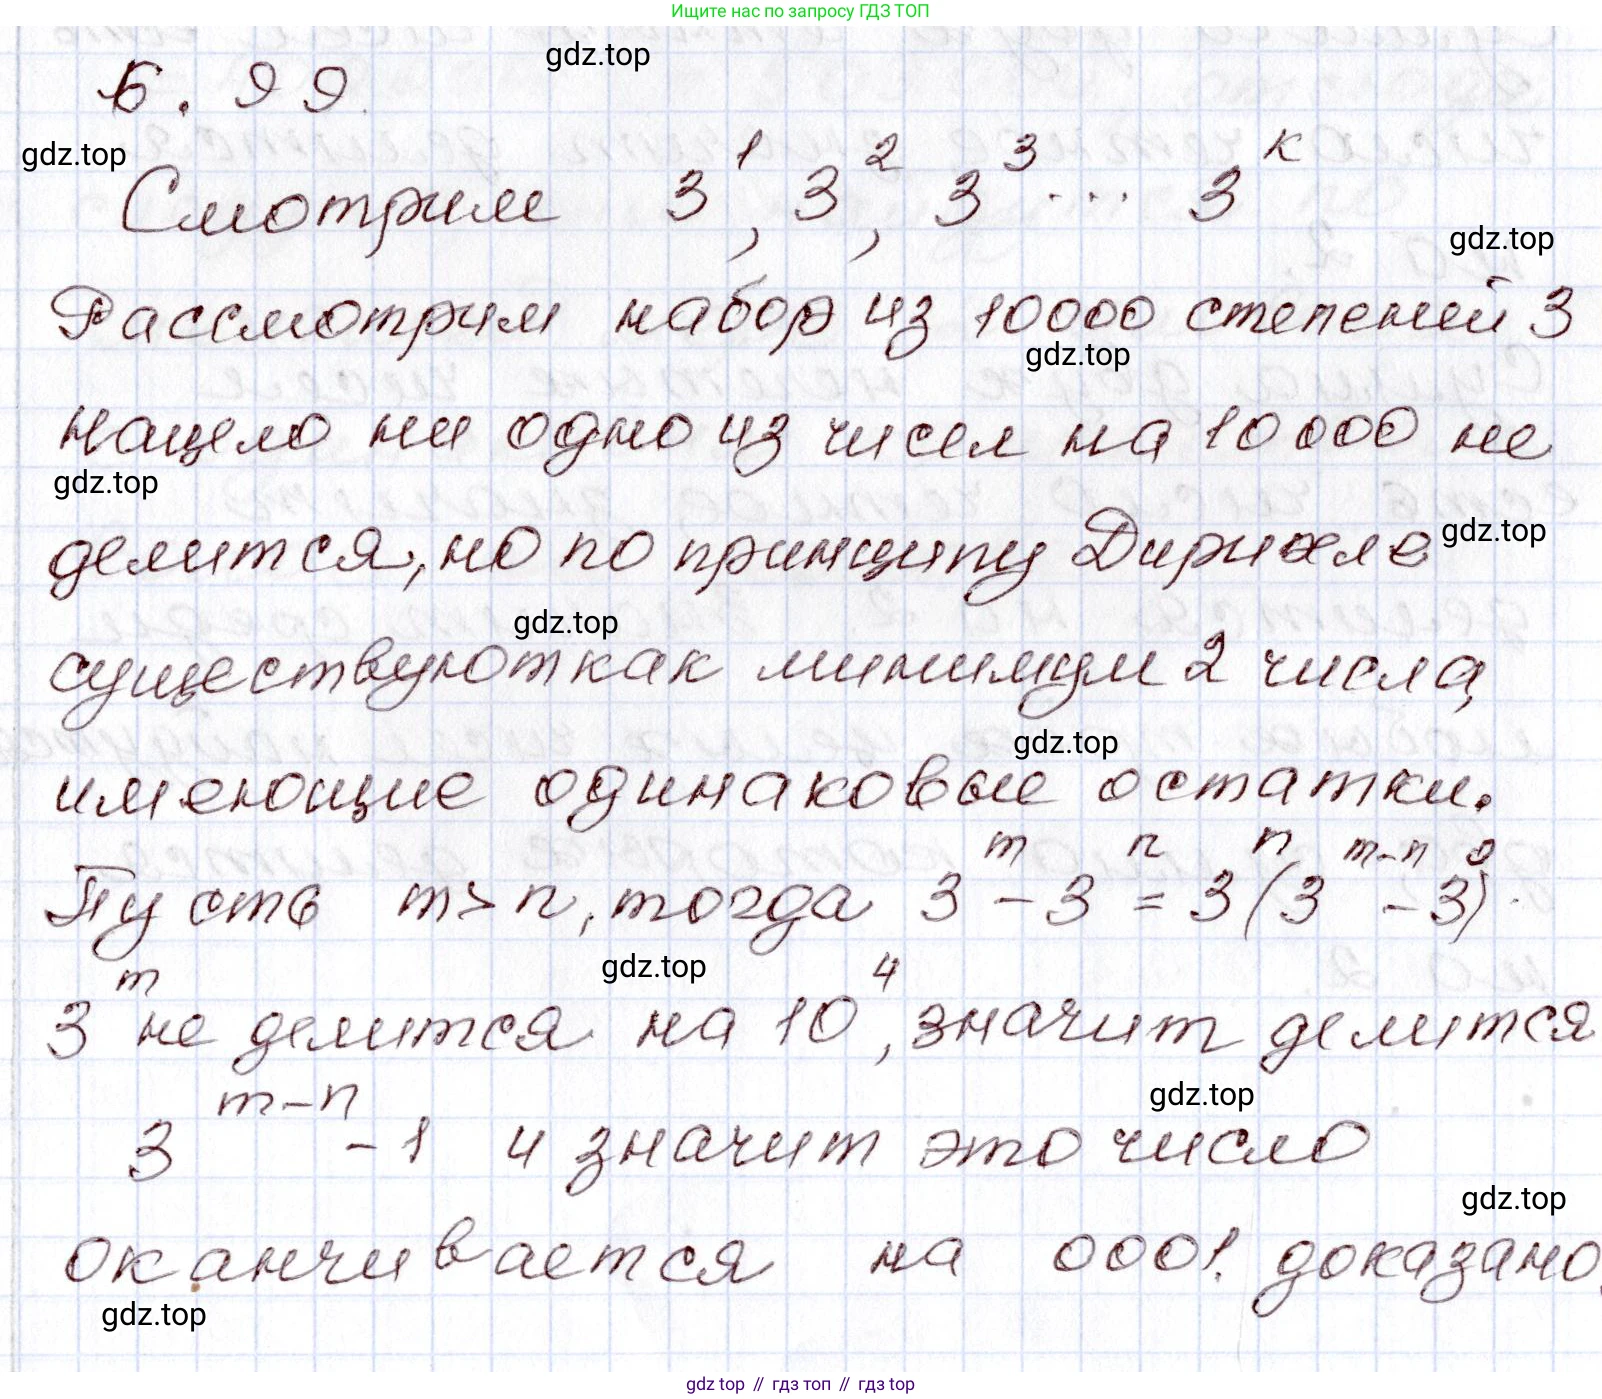 Ищите нас по запросу ГДЗ ТОП
gdz.top
Б. 99.
gdz.top
Смотрим 3^1, 3^2, 3^3 ... 3^к
gdz.top
Рассмотрим набор из 10000 степеней 3
gdz.top
нацело ни одно из чисел на 10000 не
gdz.top
делится, но по принципу Дирихле
gdz.top
gdz.top
существуют как минимум 2 числа,
gdz.top
имеющие одинаковые остатки.
Пусть m > n, тогда 3^m - 3^n = 3^n (3^{m-n} - 3^0).
gdz.top
3^m не делится на 10^4, значит делится
gdz.top
3^{m-n} - 1 и значит это число
gdz.top
оканчивается на 0001. доказано.
gdz.top
gdz top // гдз топ // gdz top